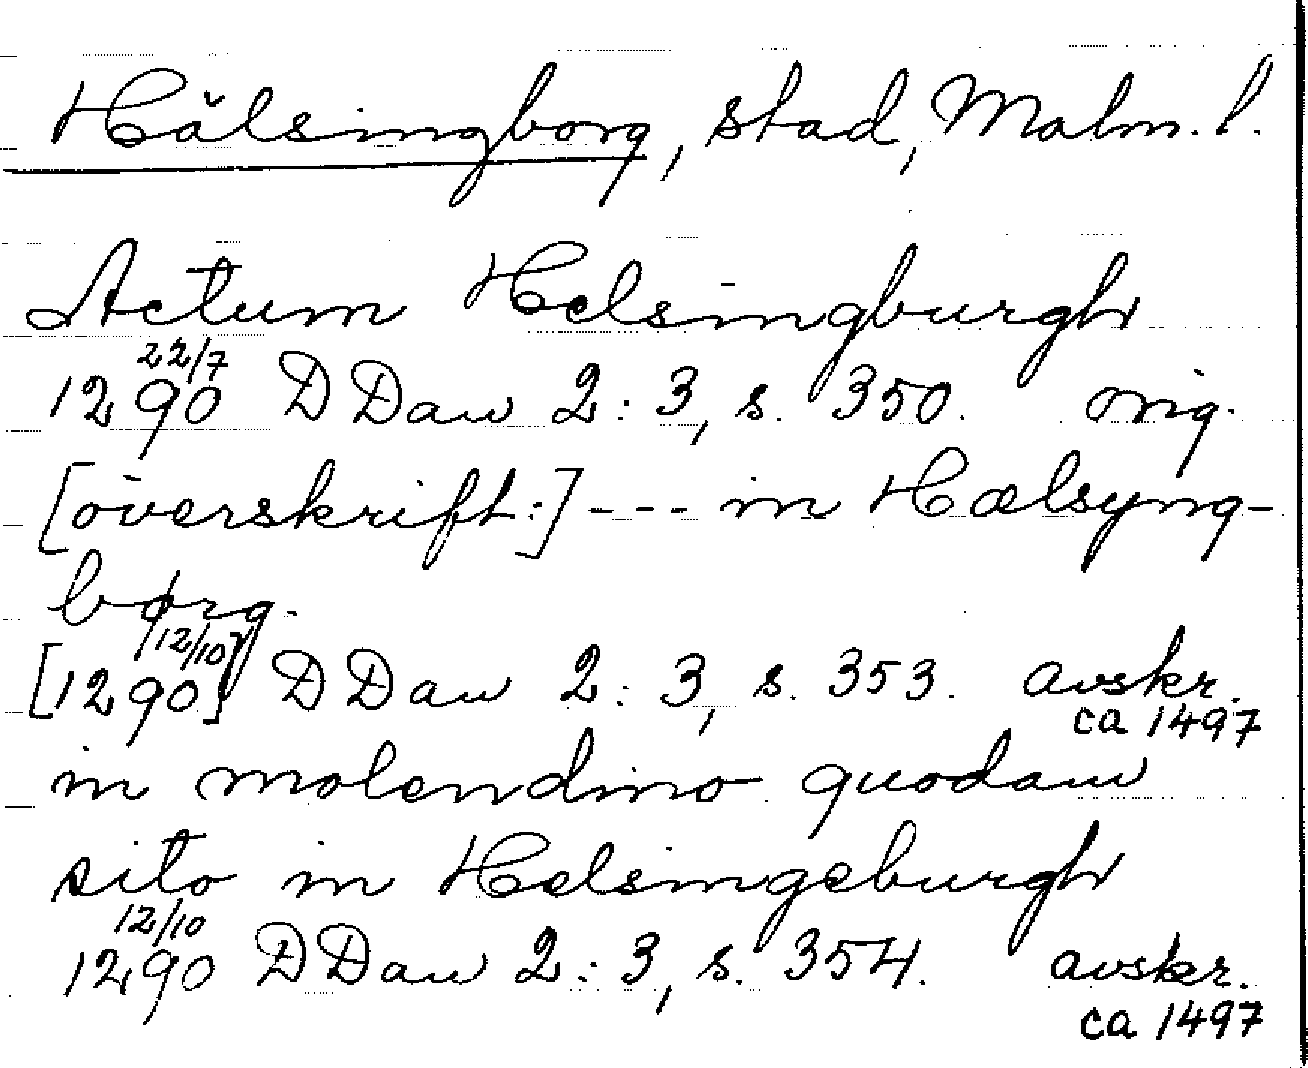 Hälsingborg, stad, Malm. l.
Actum Helsingburgh
1290 22/7 DDan 2:3, s. 350. orig.
[överskrift:] --- in Hælsyng-
børg.
[1290 12/10] DDan 2:3, s. 353. avskr.
ca 1497
in molendino quodam
sito in Helsingeburgh
1290 12/10 DDan 2:3, s. 354. avskr.
ca 1497